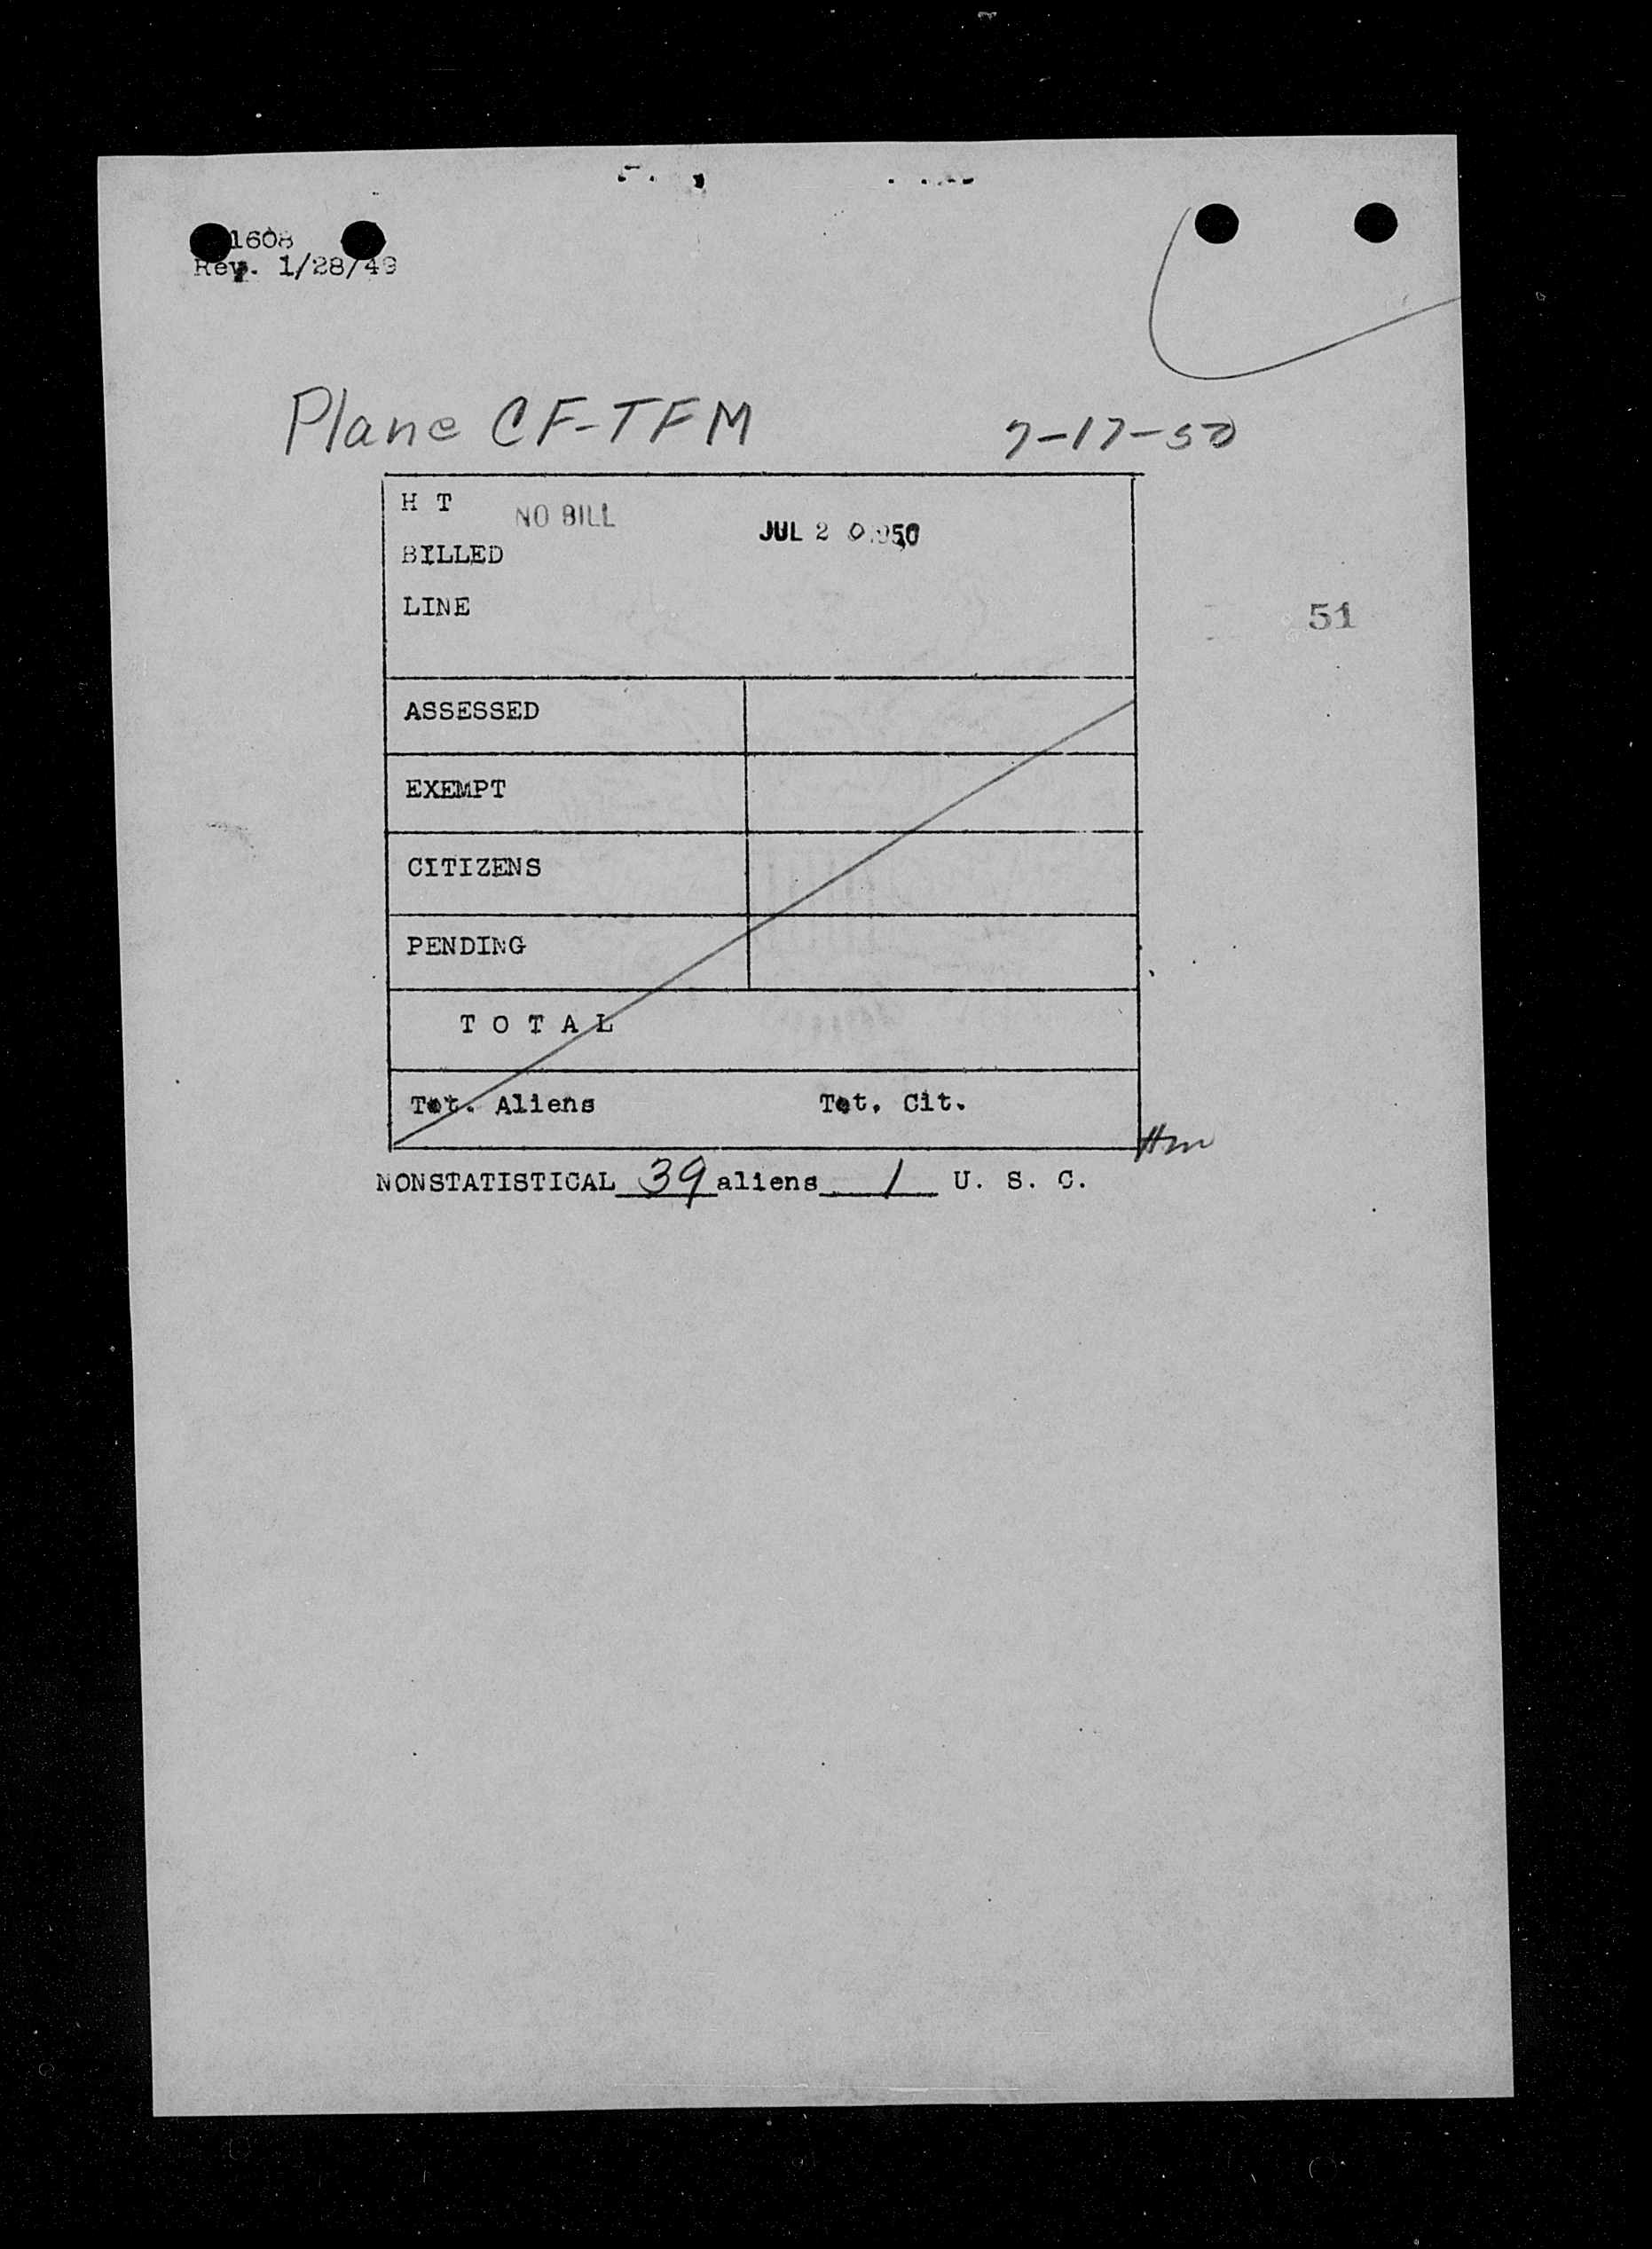 1608
Rev. 1/28/49
Plane CF-TFM 7-17-50
H T NO BILL
JUL 2 0 1950
BILLED
LINE
51
ASSESSED
EXEMPT
CITIZENS
PENDING
T O T A L
Tot. Aliens Tot. Cit.
NONSTATISTICAL 39 aliens 1 U. S. C.